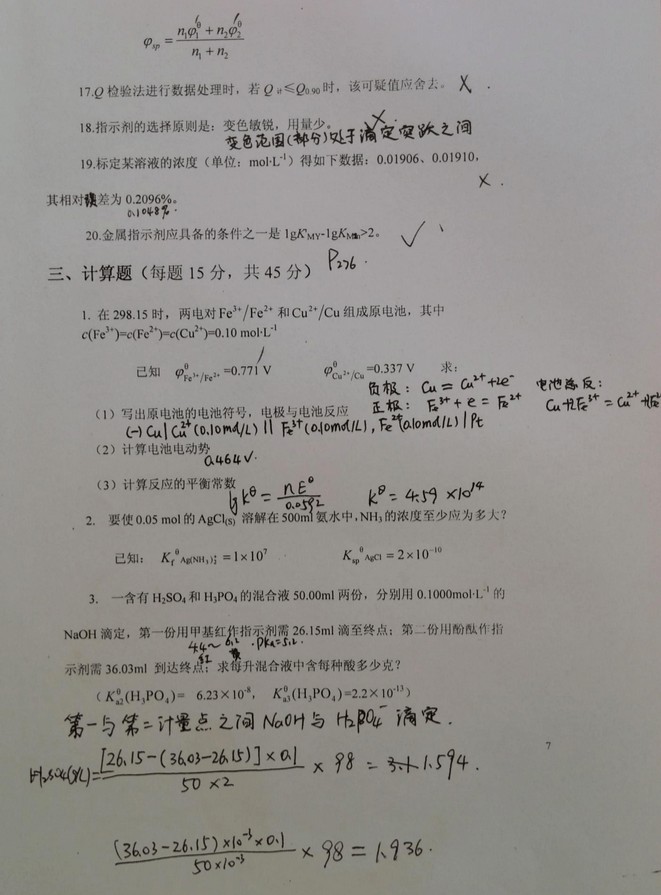 φsp = (n₁φ₁′^θ + n₂φ₂′^θ) / (n₁ + n₂)
17.Q 检验法进行数据处理时，若 Q 计≤Q0.90 时，该可疑值应舍去。 ×.
18.指示剂的选择原则是：变色敏锐，用量少。 ×.
变色范围(部分)处于滴定突跃之间
19.标定某溶液的浓度（单位：mol·L⁻¹）得如下数据：0.01906、0.01910，
其相对误差为 0.2096%。 ×.
0.1048%.
20.金属指示剂应具备的条件之一是 1gK′MY-1gK′MIn>2。 √
三、计算题（每题 15 分，共 45 分） P276.
1. 在 298.15 时，两电对 Fe³⁺/Fe²⁺ 和 Cu²⁺/Cu 组成原电池，其中
c(Fe³⁺)=c(Fe²⁺)=c(Cu²⁺)=0.10 mol·L⁻¹
已知 φ^θ Fe³⁺/Fe²⁺ =0.771 V φ^θ Cu²⁺/Cu =0.337 V 求：
负极： Cu = Cu²⁺+2e⁻ 电池总反：
（1）写出原电池的电池符号，电极与电池反应 正极： Fe³⁺ + e = Fe²⁺ Cu+2Fe³⁺ = Cu²⁺+2Fe²⁺
(-) Cu | Cu²⁺(0.10mol/L) || Fe³⁺(0.10mol/L), Fe²⁺(0.10mol/L) | Pt
（2）计算电池电动势
0.464V.
（3）计算反应的平衡常数
lg K^θ = nE^θ / 0.0592 K^θ = 4.59 ×10¹⁴
2. 要使 0.05 mol 的 AgCl(S) 溶解在 500ml 氨水中，NH₃ 的浓度至少应为多大？
已知： Kf^θ Ag(NH₃)₂⁺ = 1×10⁷ Ksp^θ AgCl = 2×10⁻¹⁰
3. 一含有 H₂SO₄ 和 H₃PO₄ 的混合液 50.00ml 两份，分别用 0.1000mol·L⁻¹ 的
NaOH 滴定，第一份用甲基红作指示剂需 26.15ml 滴至终点；第二份用酚酞作指
4.4～6.2 . pKa=5.2.
红 黄
示剂需 36.03ml 到达终点；求每升混合液中含每种酸多少克？
（ Ka2^θ(H₃PO₄)= 6.23×10⁻⁸， Ka3^θ(H₃PO₄)=2.2×10⁻¹³）
第一与第二计量点之间 NaOH 与 H₂PO₄⁻ 滴定.
H₂SO₄(g/L)= [26.15-(36.03-26.15)]×0.1 / 50×2 × 98 = 1.594.
7
(36.03-26.15)×10⁻³×0.1 / 50×10⁻³ × 98 = 1.936.